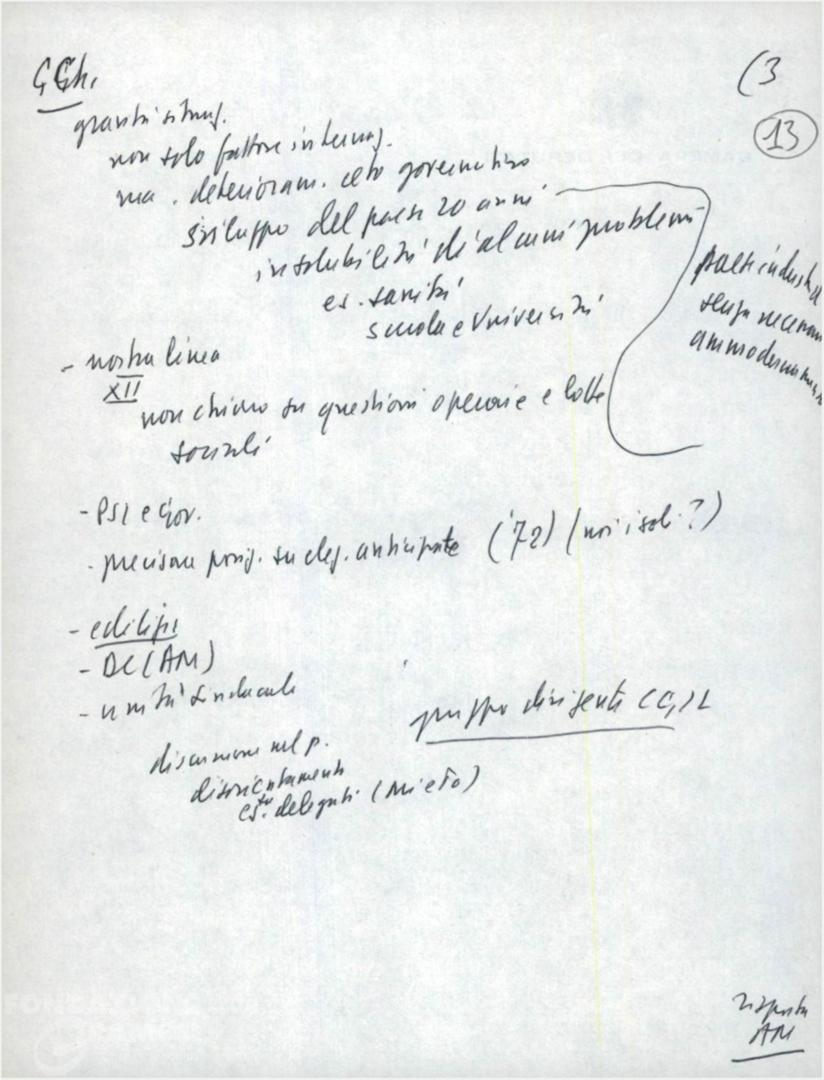 G.Ch.
(3
13
gravità situaz.
non solo fattore internaz.
ma . deterioram. ceto governativo
sviluppo del paese 20 anni
insolubilità di alcuni problemi
es. sanità
scuola e Università
paese industr
senza necessar
- nostra linea
XII
non chiuso su questioni operaie e lotte
sociali
- PSI e Gov.
- precisare posiz. su elez. anticipate ('72) (noi isol. ?)
- edilizia
- DC (AM)
- unità sindacale
gruppo dirigente CGIL
discussione nel p.
disorientamento
delegati
risposta
AM